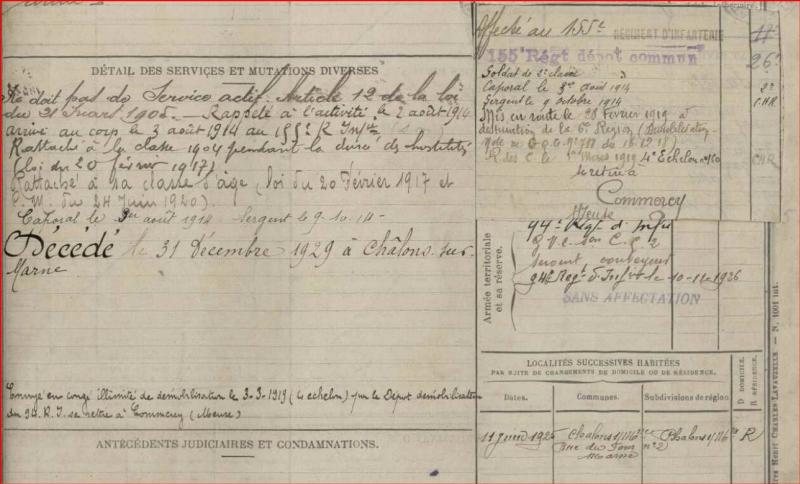 DÉTAIL DES SERVICES ET MUTATIONS DIVERSES
Ne doit pas de Service actif. Article 12 de la loi
du 31 mars 1905. — Rappelé à l'activité le 2 août 1914
arrivé au corps le 3 août 1914 au
Rattaché à la classe 1904 pendant la durée des hostilités
(loi du 20 février 1917)
Rattaché à sa classe d'âge (loi du 20 Février 1917 et
C. M. du 24 Juin 1920).
Caporal le août 1914 Sergent le 9-10-14-
Décédé le 31 Décembre 1929 à Châlons-sur-
Marne
Envoyé en congé illimité de démobilisation le 3-3-1919 (4e échelon) par le Dépôt démobilisateur
du 94 R.I. se retire à Commercy (Meuse)
ANTÉCÉDENTS JUDICIAIRES ET CONDAMNATIONS.
Affecté au 155e RÉGIMENT D'INFANTERIE
155e Régt dépôt commun
Soldat de 2e classe
Caporal le août 1914
Sergent le 9 octobre 1914
Mis en route le 28 février 1919 à
destination de la 6e Région (Démobilisation
R des C. le 1er Mars 1919 4e Echelon
se retire à
Commercy
Meuse
94e Régt d'Infie
94e Régt d'Infie le 10-11-1926
SANS AFFECTATION
Armée territoriale
et sa réserve.
LOCALITÉS SUCCESSIVES HABITÉES
PAR SUITE DE CHANGEMENTS DE DOMICILE OU DE RÉSIDENCE.
Dates. Communes. Subdivisions de région. D. DOMICILE. R. RÉSIDENCE.
11 Juin 1926 Chalons s/Mne Chalons s/Mne R
Rue du n°2
Marne
HENRI CHARLES-LAVAUZELLE — N. 1001 int.